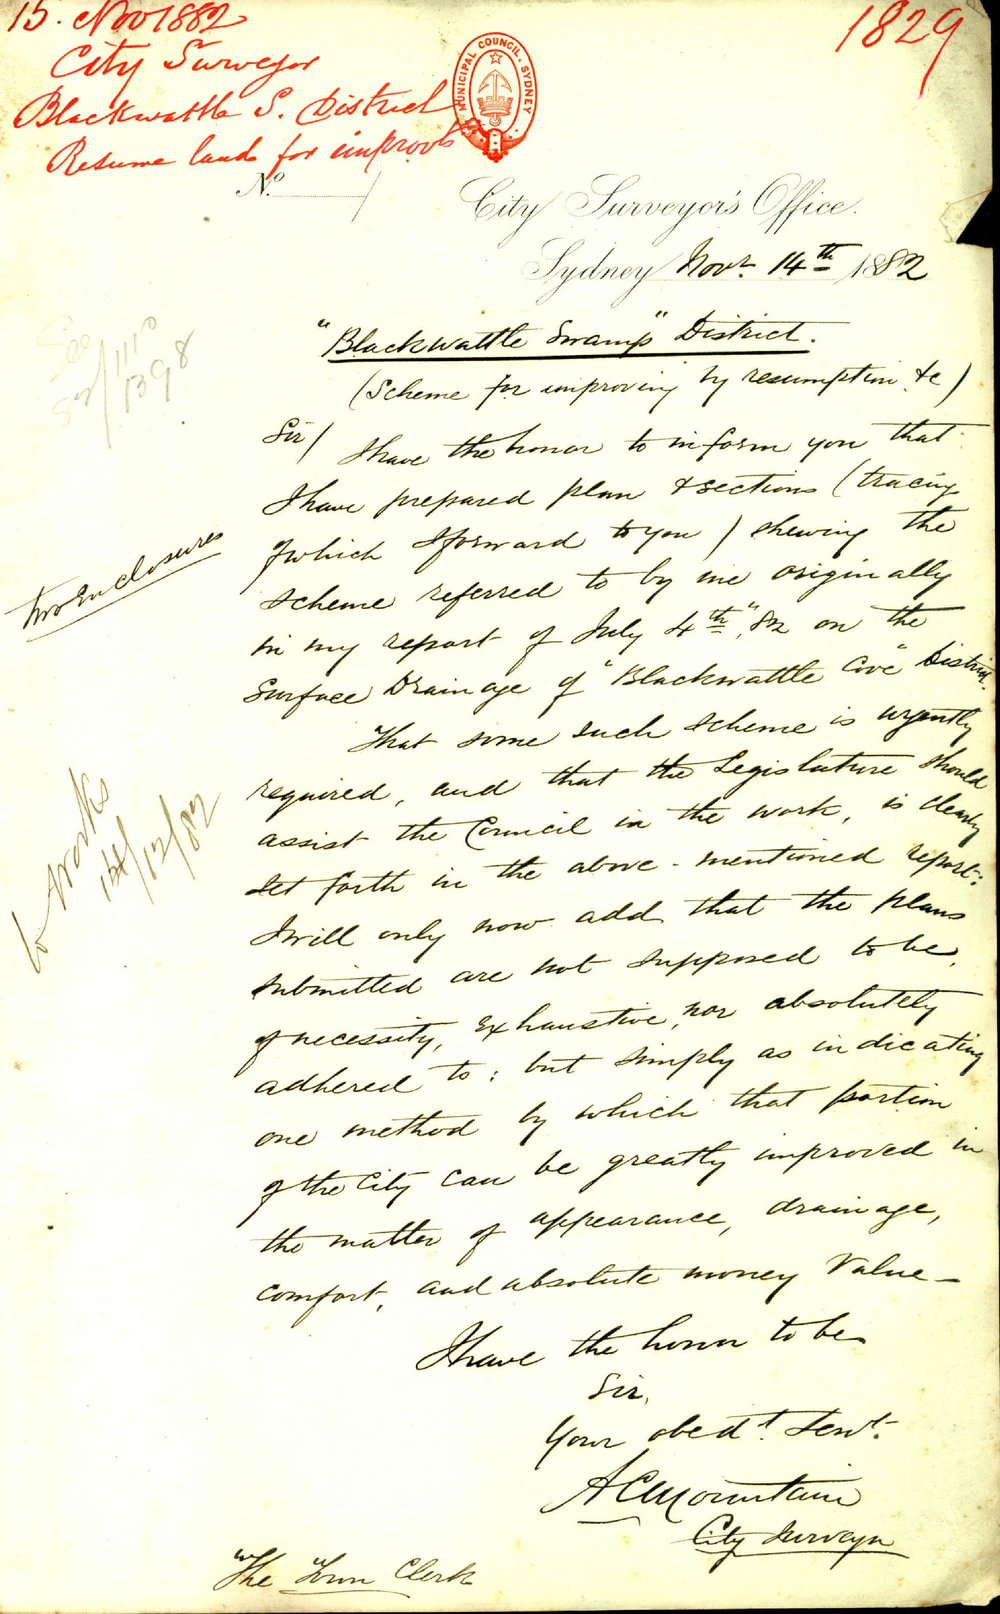 15. Nov 1882
City Surveyor
Blackwattle S. District
Resume lands for improvts
1829
MUNICIPAL COUNCIL. SYDNEY
No.
City Surveyor's Office.
Sydney Novr. 14th 1882
"Blackwattle Swamp" District.
(Scheme for improving by resumption &c)
Sir/ I have the honor to inform you that
I have prepared plan & sections (tracings
of which I forward to you) shewing the
scheme referred to by me originally
in my report of July 4th, 82 on the
Surface Drainage of "Blackwattle Cove" District.
That some such scheme is urgently
required, and that the Legislature should
assist the Council in the work, is clearly
set forth in the above-mentioned report:
I will only now add that the plans
submitted are not supposed to be,
of necessity, exhaustive, nor absolutely
adhered to; but simply as indicating
one method by which that portion
of the City can be greatly improved in
the matter of appearance, drainage,
comfort, and absolute money value—
I have the honor to be
Sir,
Your obedt. Servt.
A C Mountain
City Surveyor
"The Town Clerk
See
82/1110
1398
Two Enclosures
To Works
14/12/82